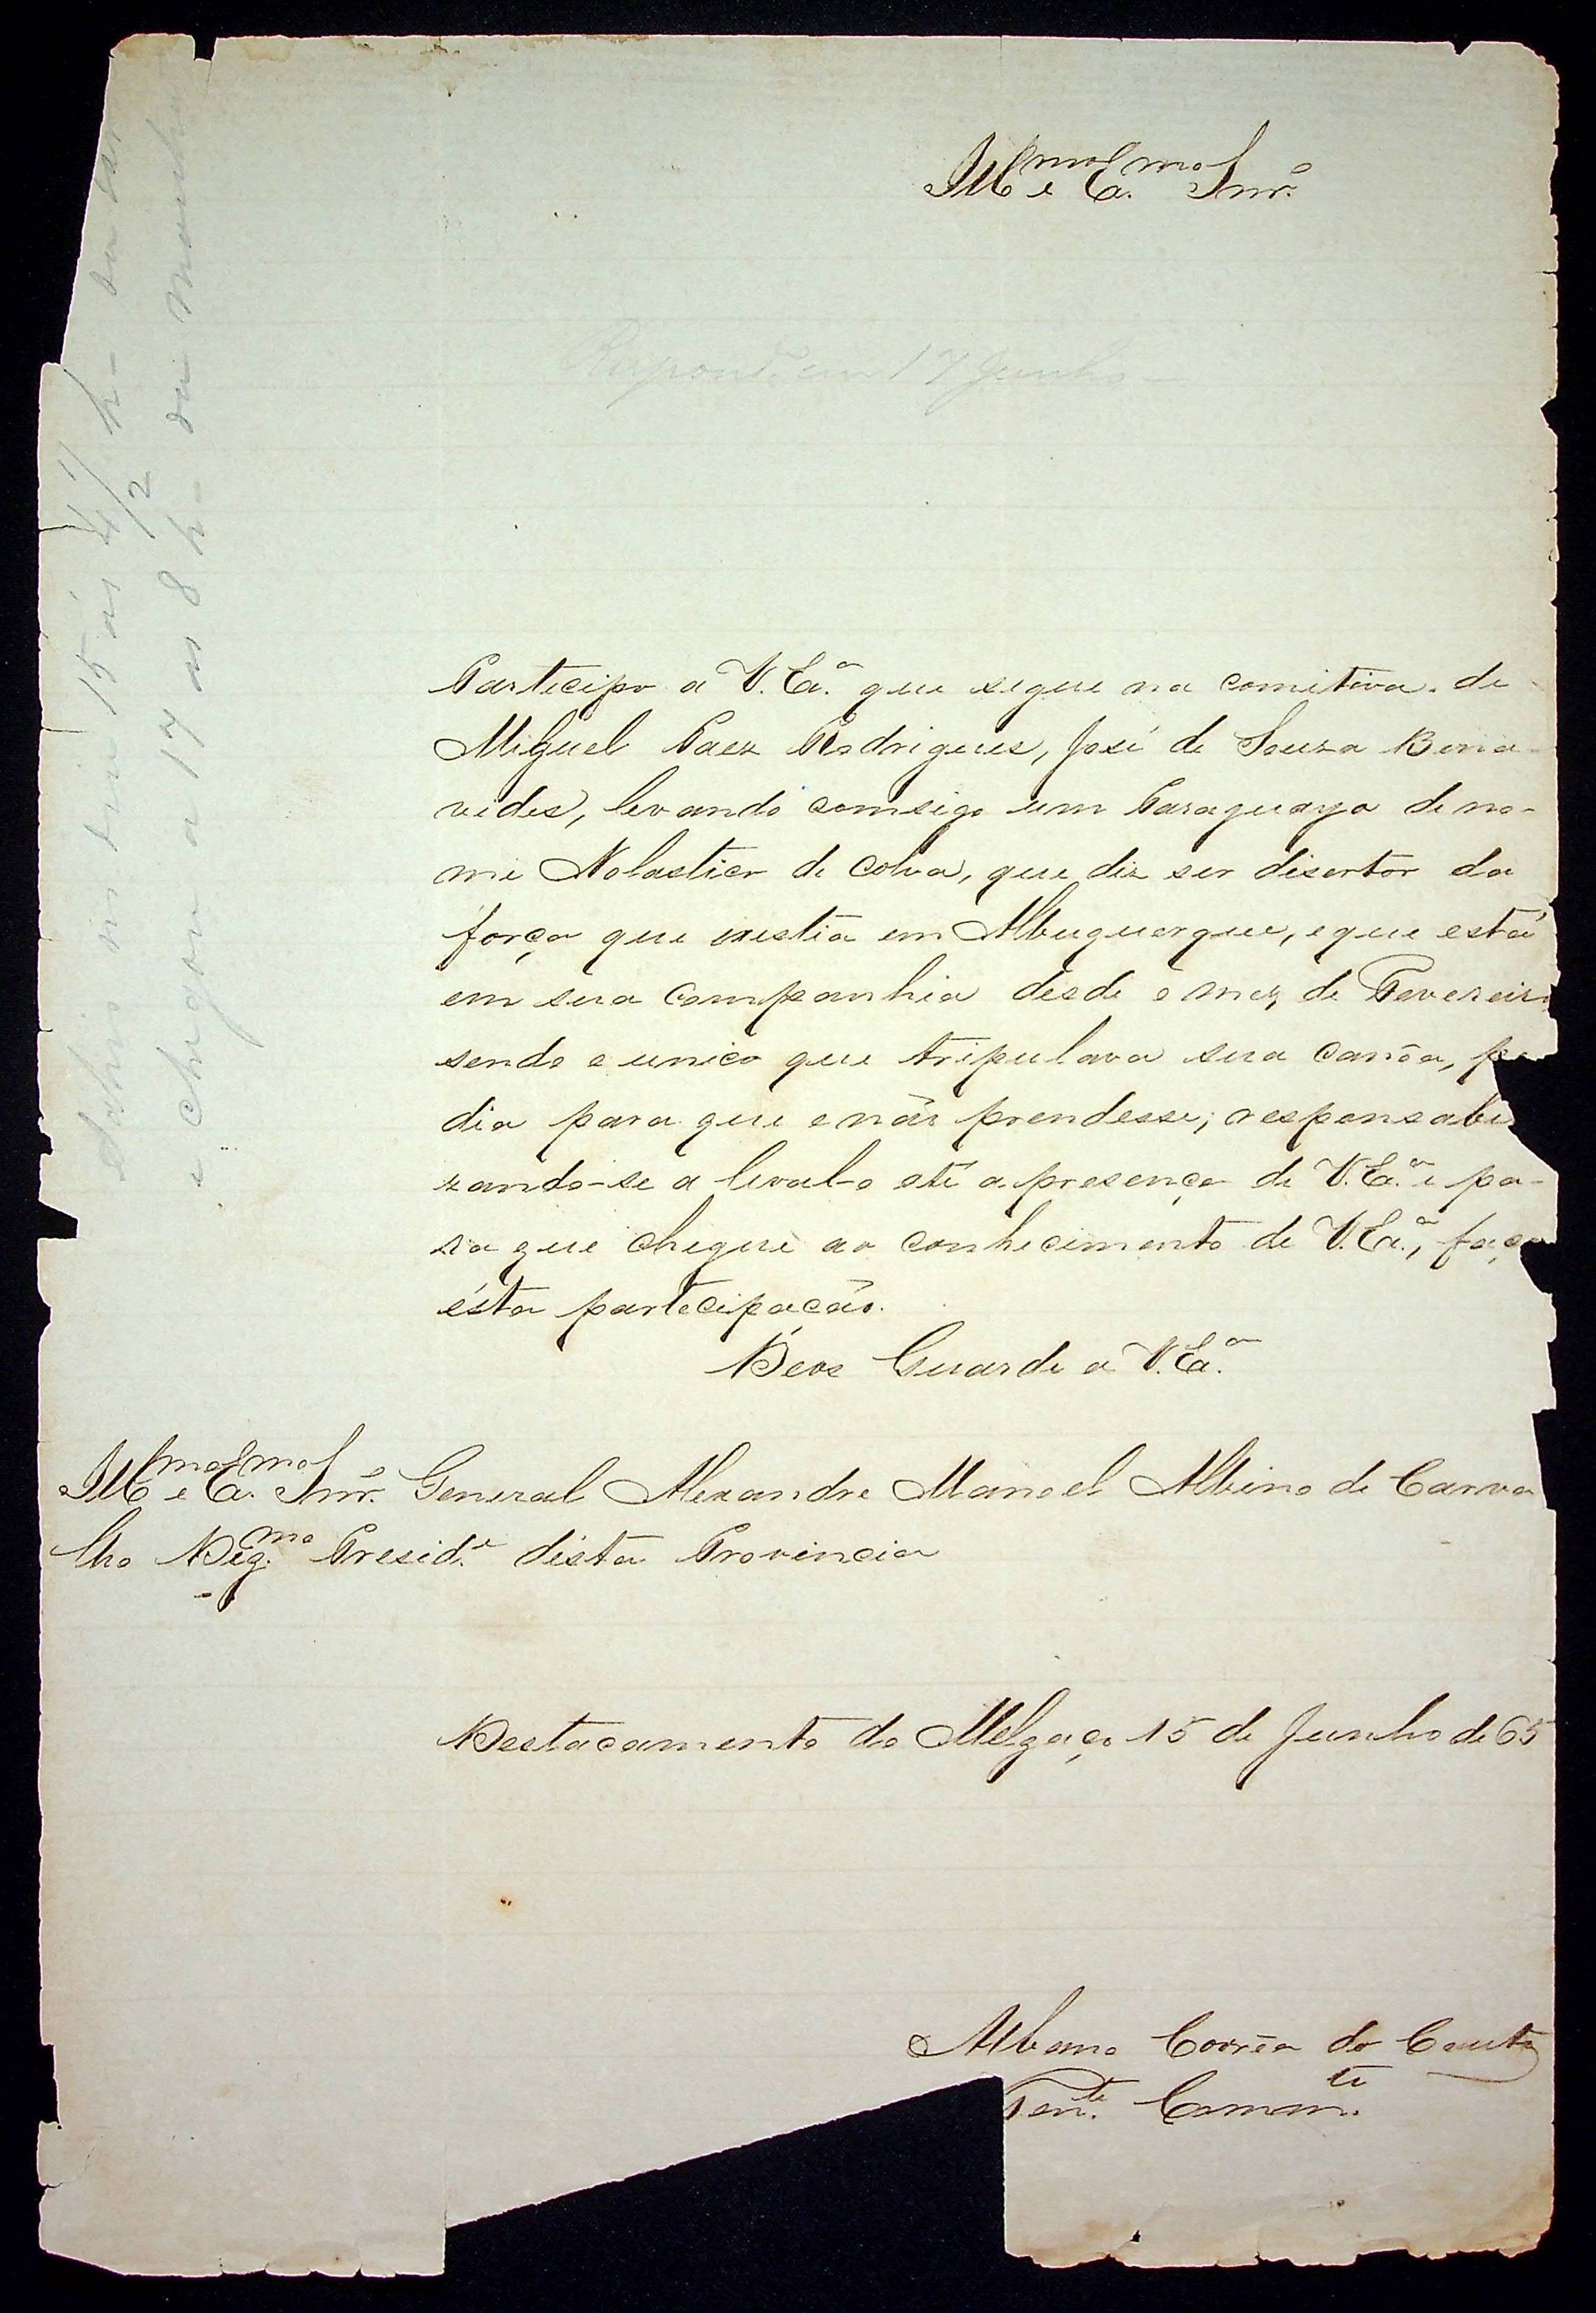 Ill.mo e Ex.mo Snr.
Respond. em 17 Junho
Participo a V. Ex.a que segue na comitiva de
Miguel Paez Rodrigues, José de Souza Bena-
vides, levando comsigo um Paraguayo de no-
me de que diz ser disertor da
força que existia em Albuquerque, e que está
em sua companhia desde o mez de Fevereiro
sendo o unico que tripulava sua canôa, pe
dia para que o não prendesse; responsabi
zando-se a leval-o até a presença de V. Ex.a e pa-
ra que chegue ao conhecimento de V. Ex.a, faço
ésta partecipação.
Deos Guarde a V. Ex.a
Ill.mo e Ex.mo Snr. General Alexandre Manoel Albino de Carva
lho Dig.mo Presid.e désta Provincia
Destacamento do Melgaço 15 de Junho de 65
Albano Corrêa do Couto
Ten.te Comm.te
no dia 15 ás 4 1/2 h- da
e chegou a 17 as 8 h- da manhã